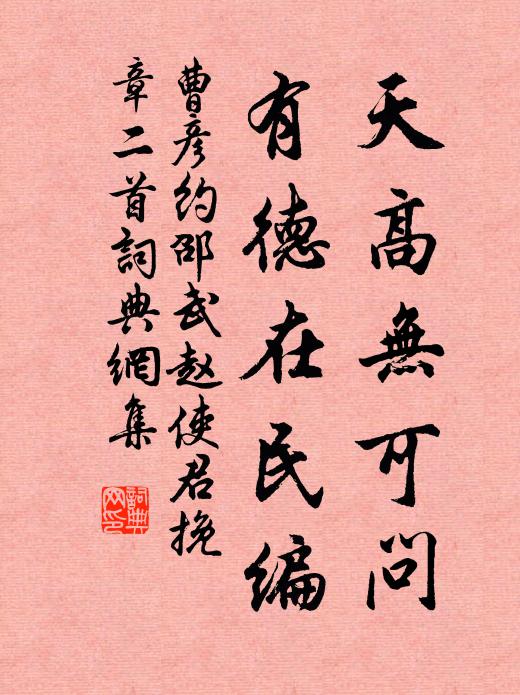 天高無可問
有德在民編
曹彦约邵武赵使君挽
章二首詞典網集
詞典
网印